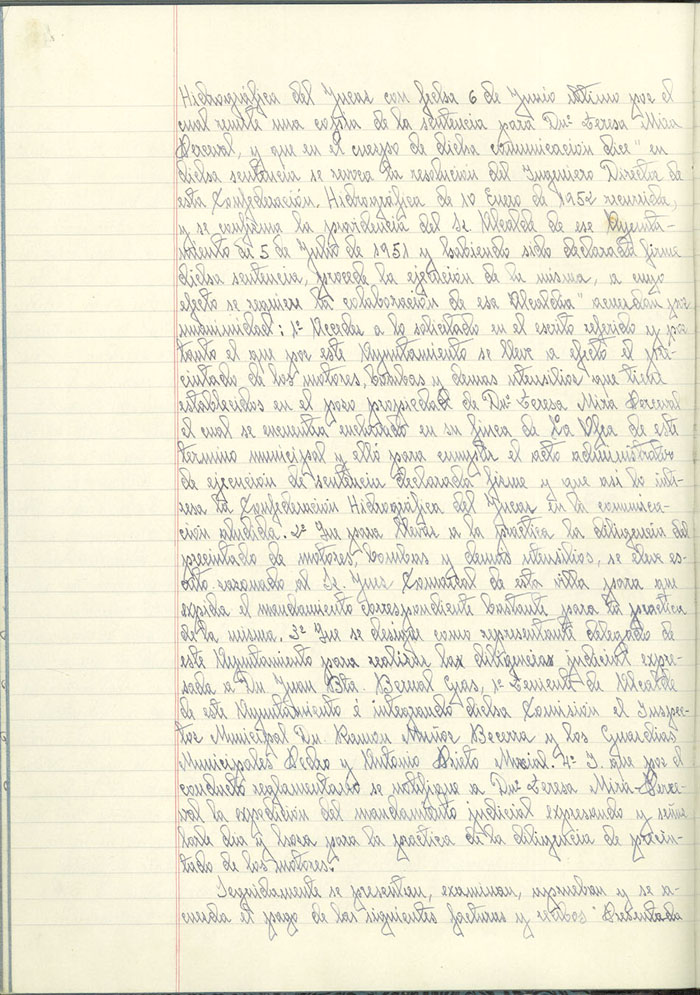 Hidrográfica del Jucar con fecha 6 de Junio ultimo por el
cual remite una copia de la sentencia para Dnª Teresa Mira
Perceval, y que en el cuerpo de dicha comunicacion dice" en
dicha sentencia se revoca la resolucion del Ingeniero Director de
esta Confederación Hidrográfica de 10 Enero de 1952 recurrida,
y se confirma la providencia del Sr. Alcalde de ese Ayunta-
miento de 5 de Julio de 1951 y habiendo sido declarada firme
dicha sentencia, procede la ejecución de la misma, a cuyo
efecto se requiere la colaboración de esa Alcaldia" acuerdan por
unanimidad: 1º Acceder a lo solicitado en el escrito referido y por
tanto el que por este Ayuntamiento se lleve a efecto el pre-
cintado de los motores, bombas y demas utensilios que tiene
establecidos en el pozo propiedad de Dnª Teresa Mira Perceval
el cual se encuentra enclavado en su finca de La Alfea de este
termino municipal y ello para cumplir el acto administrativo
de ejecucion de sentencia declarada firme y que asi lo inte-
resa la Confederacion Hidrográfica del Jucar en la comunica-
ción aludida. 2º Que para llevar a la práctica la diligencia del
precintado de motores, bombas y demas utensilios, se eleve es-
crito razonado al Sr. Juez Comarcal de esta villa para que
expida el mandamiento correspondiente bastante para la practica
de la misma. 3º Que se designe como representante delegado de
este Ayuntamiento para realizar las diligencias judicial expre-
sada a Dn Juan Bta. Bernal 1º Teniente de Alcalde
de este Ayuntamiento é integrando dicha Comisión el Inspec-
tor Municipal Dn. Ramon Muñoz Becerra y los Guardias
Municipales Pedro y Antonio Prieto 4º Y que por el
conducto reglamentario se notifique a Dnª Teresa Mira Perce-
val la expedición del mandamiento judicial expresando y seña
lando dia y hora para la práctica de la diligencia de precin-
tado de los motores.
Seguidamente se presentan, examinan, aprueban y se a-
cuerda el pago de las siguientes facturas y recibos: Presentada